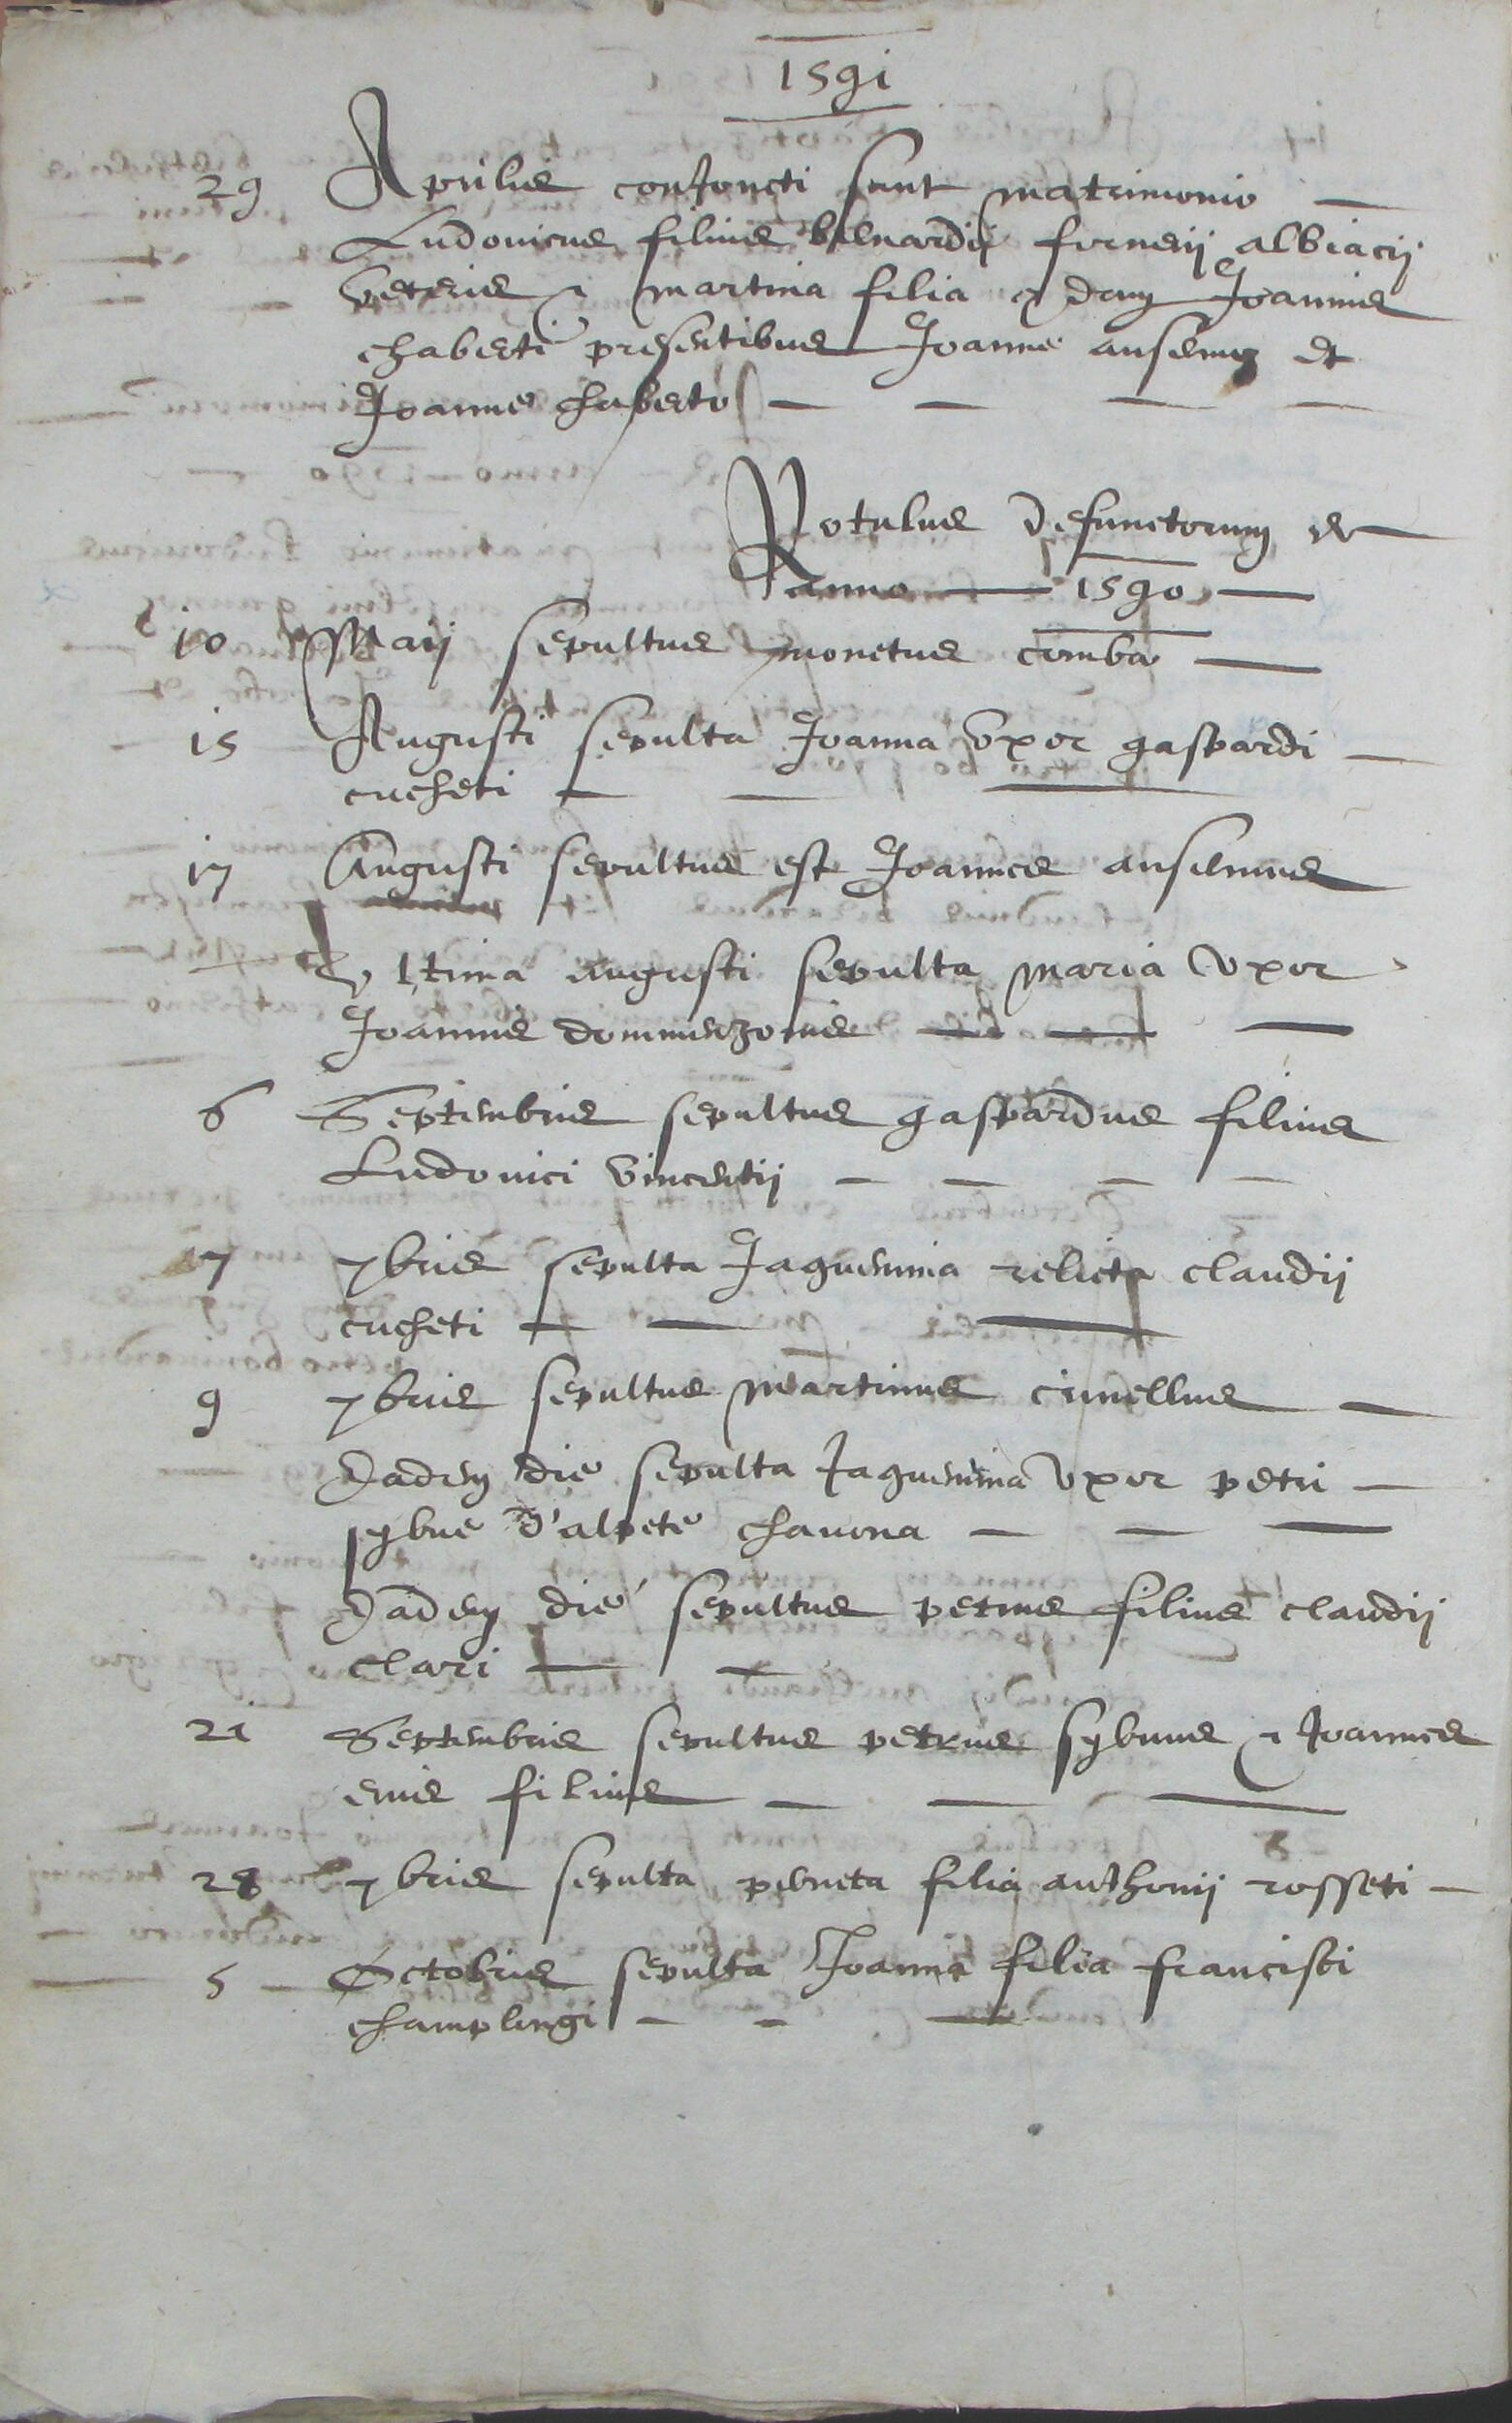 1591
29 Aprilis conjoncti sunt matrimonio
Ludovicus filius bernardi fornerii albiacii
veteris & martina filia Joannis
chaberti presentibus Joanne anselmo et
Joanne chaberto
Rotulus defunctorum de
anno 1590
10 Maii sepultus monetus comba
15 Augusti sepulta Joanna Uxor gaspardi
cucheti
17 Augusti sepultus est Joannes anselmus
Ultima augusti sepulta maria Uxor
Joannis dommenzonis
6 Septembris sepultus gaspardus filius
Ludovici Vincentii
7bris sepulta Jaquemina relicta claudii
cucheti
9 7bris sepultus martinus cimellus
Eadem die sepulta Jaquemina Uxor petri
sybue d'alpete chavona
Eadem die sepultus petrus filius claudii
clari
21 Septembris sepultus petrus sybuus & Joannes
eius filius
28 7bris sepulta perneta filia anthonii rosseti
5 Octobris sepulta Joanna filia francisci
champlingi